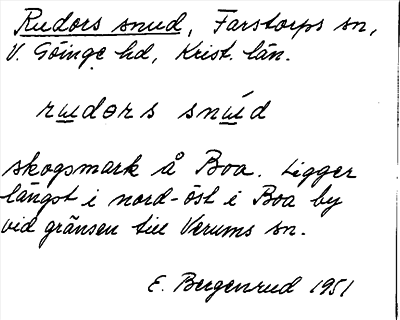 Rudors snud, Farstorps sn,
V. Göinge hd, Krist. län.
rudɵrs snúd
skogsmark å Boa. Ligger
längst i nord-öst i Boa by
vid gränsen till Verums sn.
E. Bergenrud 1951